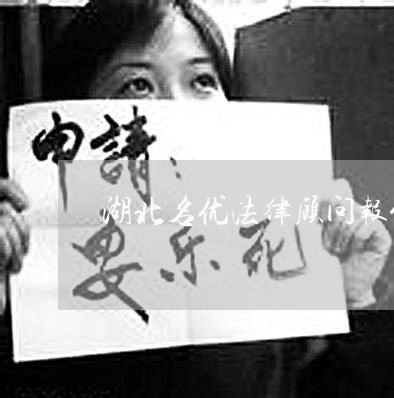 申請：
湖北名优法律顾问報
安乐死